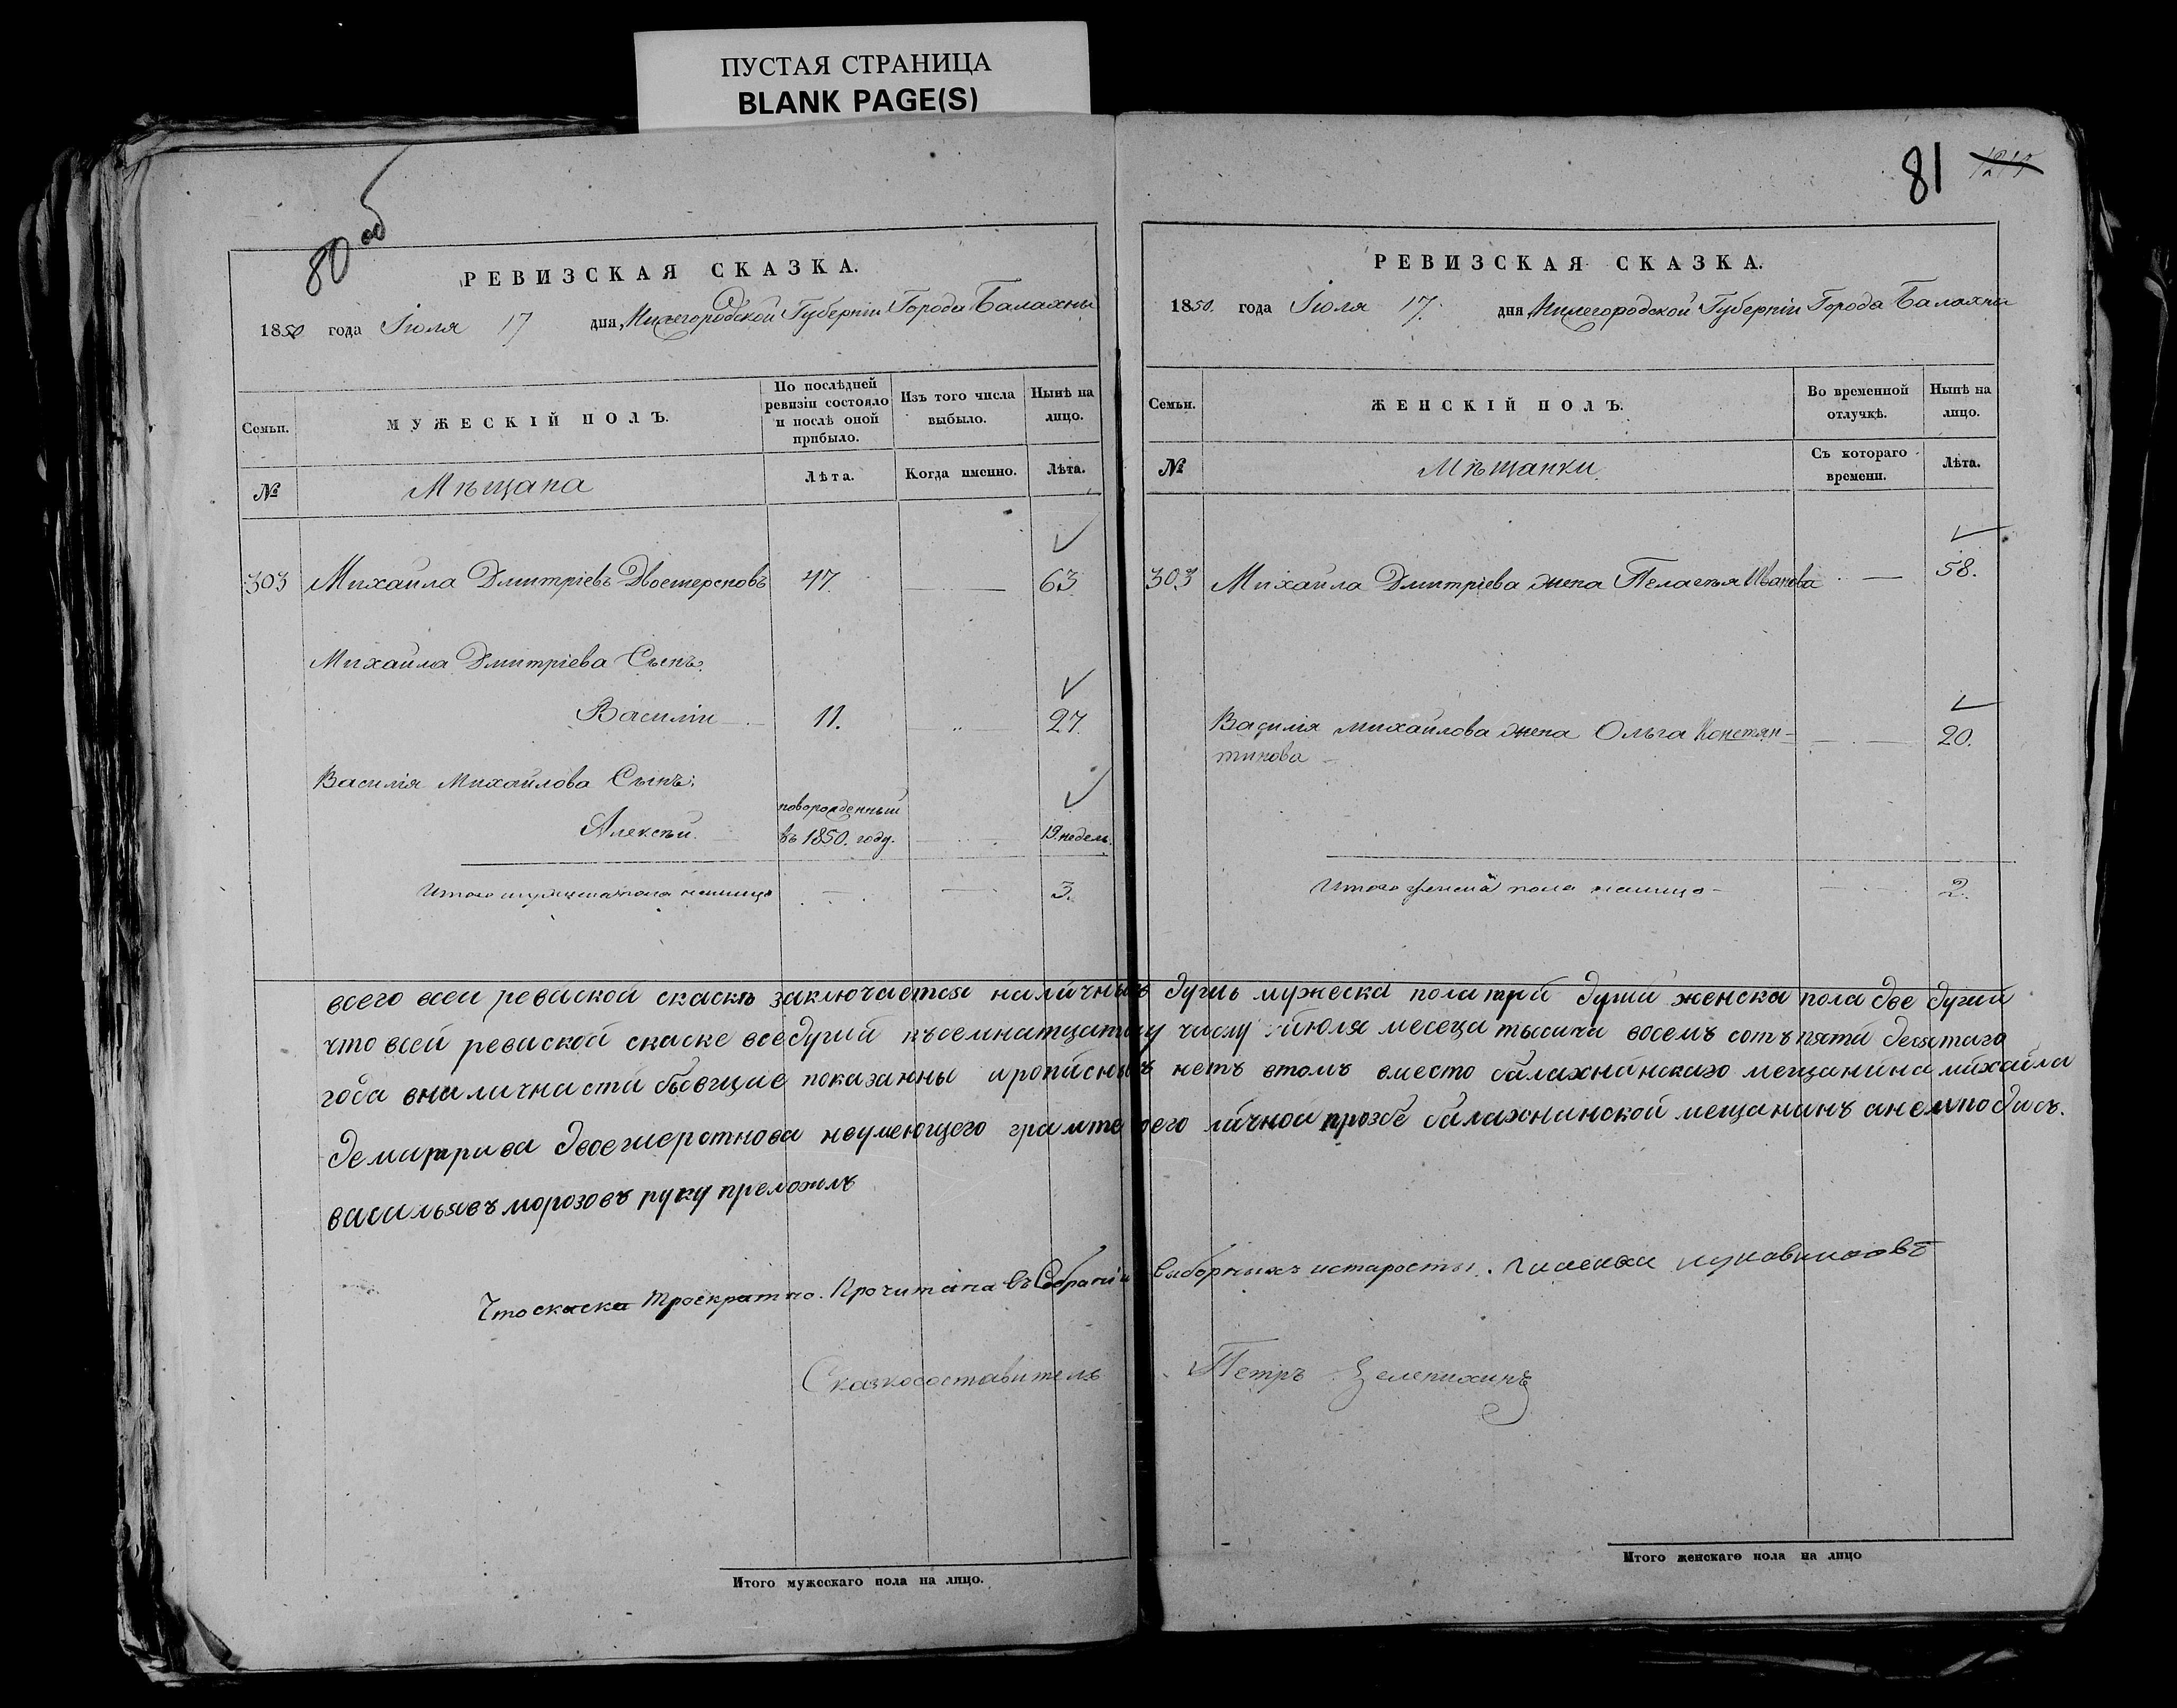 ПУСТАЯ СТРАНИЦА
BLANK PAGE(S)
80 об
РЕВИЗСКАЯ СКАЗКА.
1850 года Іюля 17 дня, Нижегородской Губерніи Города Балахны
Семьи. МУЖЕСКІЙ ПОЛЪ. По послѣдней ревизіи состояло и послѣ оной прибыло. Изъ того числа выбыло. Нынѣ на лицо.
№ Мѣщана Лѣта. Когда именно. Лѣта.
303 Михаила Дмитріевъ Двоешерсновъ 47. 63.
Михаила Дмитріева Сынъ:
Василіи 11. 27.
Василія Михайлова Сынъ:
Алексѣй новорожденный въ 1850. году. 19. недель.
Итого мужеска пола налицо 3.
81
РЕВИЗСКАЯ СКАЗКА.
1850. года Іюля 17. дня Нижегородской Губерніи Города Балахны
Семьи. ЖЕНСКІЙ ПОЛЪ. Во временной отлучкѣ. Нынѣ на лицо.
№ Мѣщанки Съ котораго времени. Лѣта.
303 Михаила Дмитріева жена Пелагѣя Иванова 58.
Василія Михайлова жена Ольга Констян-
тинова 20.
Итого женска пола налицо 2.
всего всеи ревиской скаскѣ заключается наличныхъ душь мужеска пола три души женска пола две души
что всей ревиской скаске вседуший къ семнатцатому числу июля месеца тысича восемъ сотъ пяти десятаго
года вналичнасти бывшие показанны ипрописныхъ нетъ втомъ вместо балахнинскаго мещанина михайла
демитрива двоешерстнова неумеющего грамте поего личной прозбе балахнинской мещанинъ анемподисъ.
васильявъ морозовъ руку преложилъ
Что скаска Троекратно. Прочитана въ Собраніи Выборныхъ истаросты.
Сказкосоставитель Петръ Зеленихинъ
Итого мужескаго пола на лицо.
Итого женскаго пола на лицо